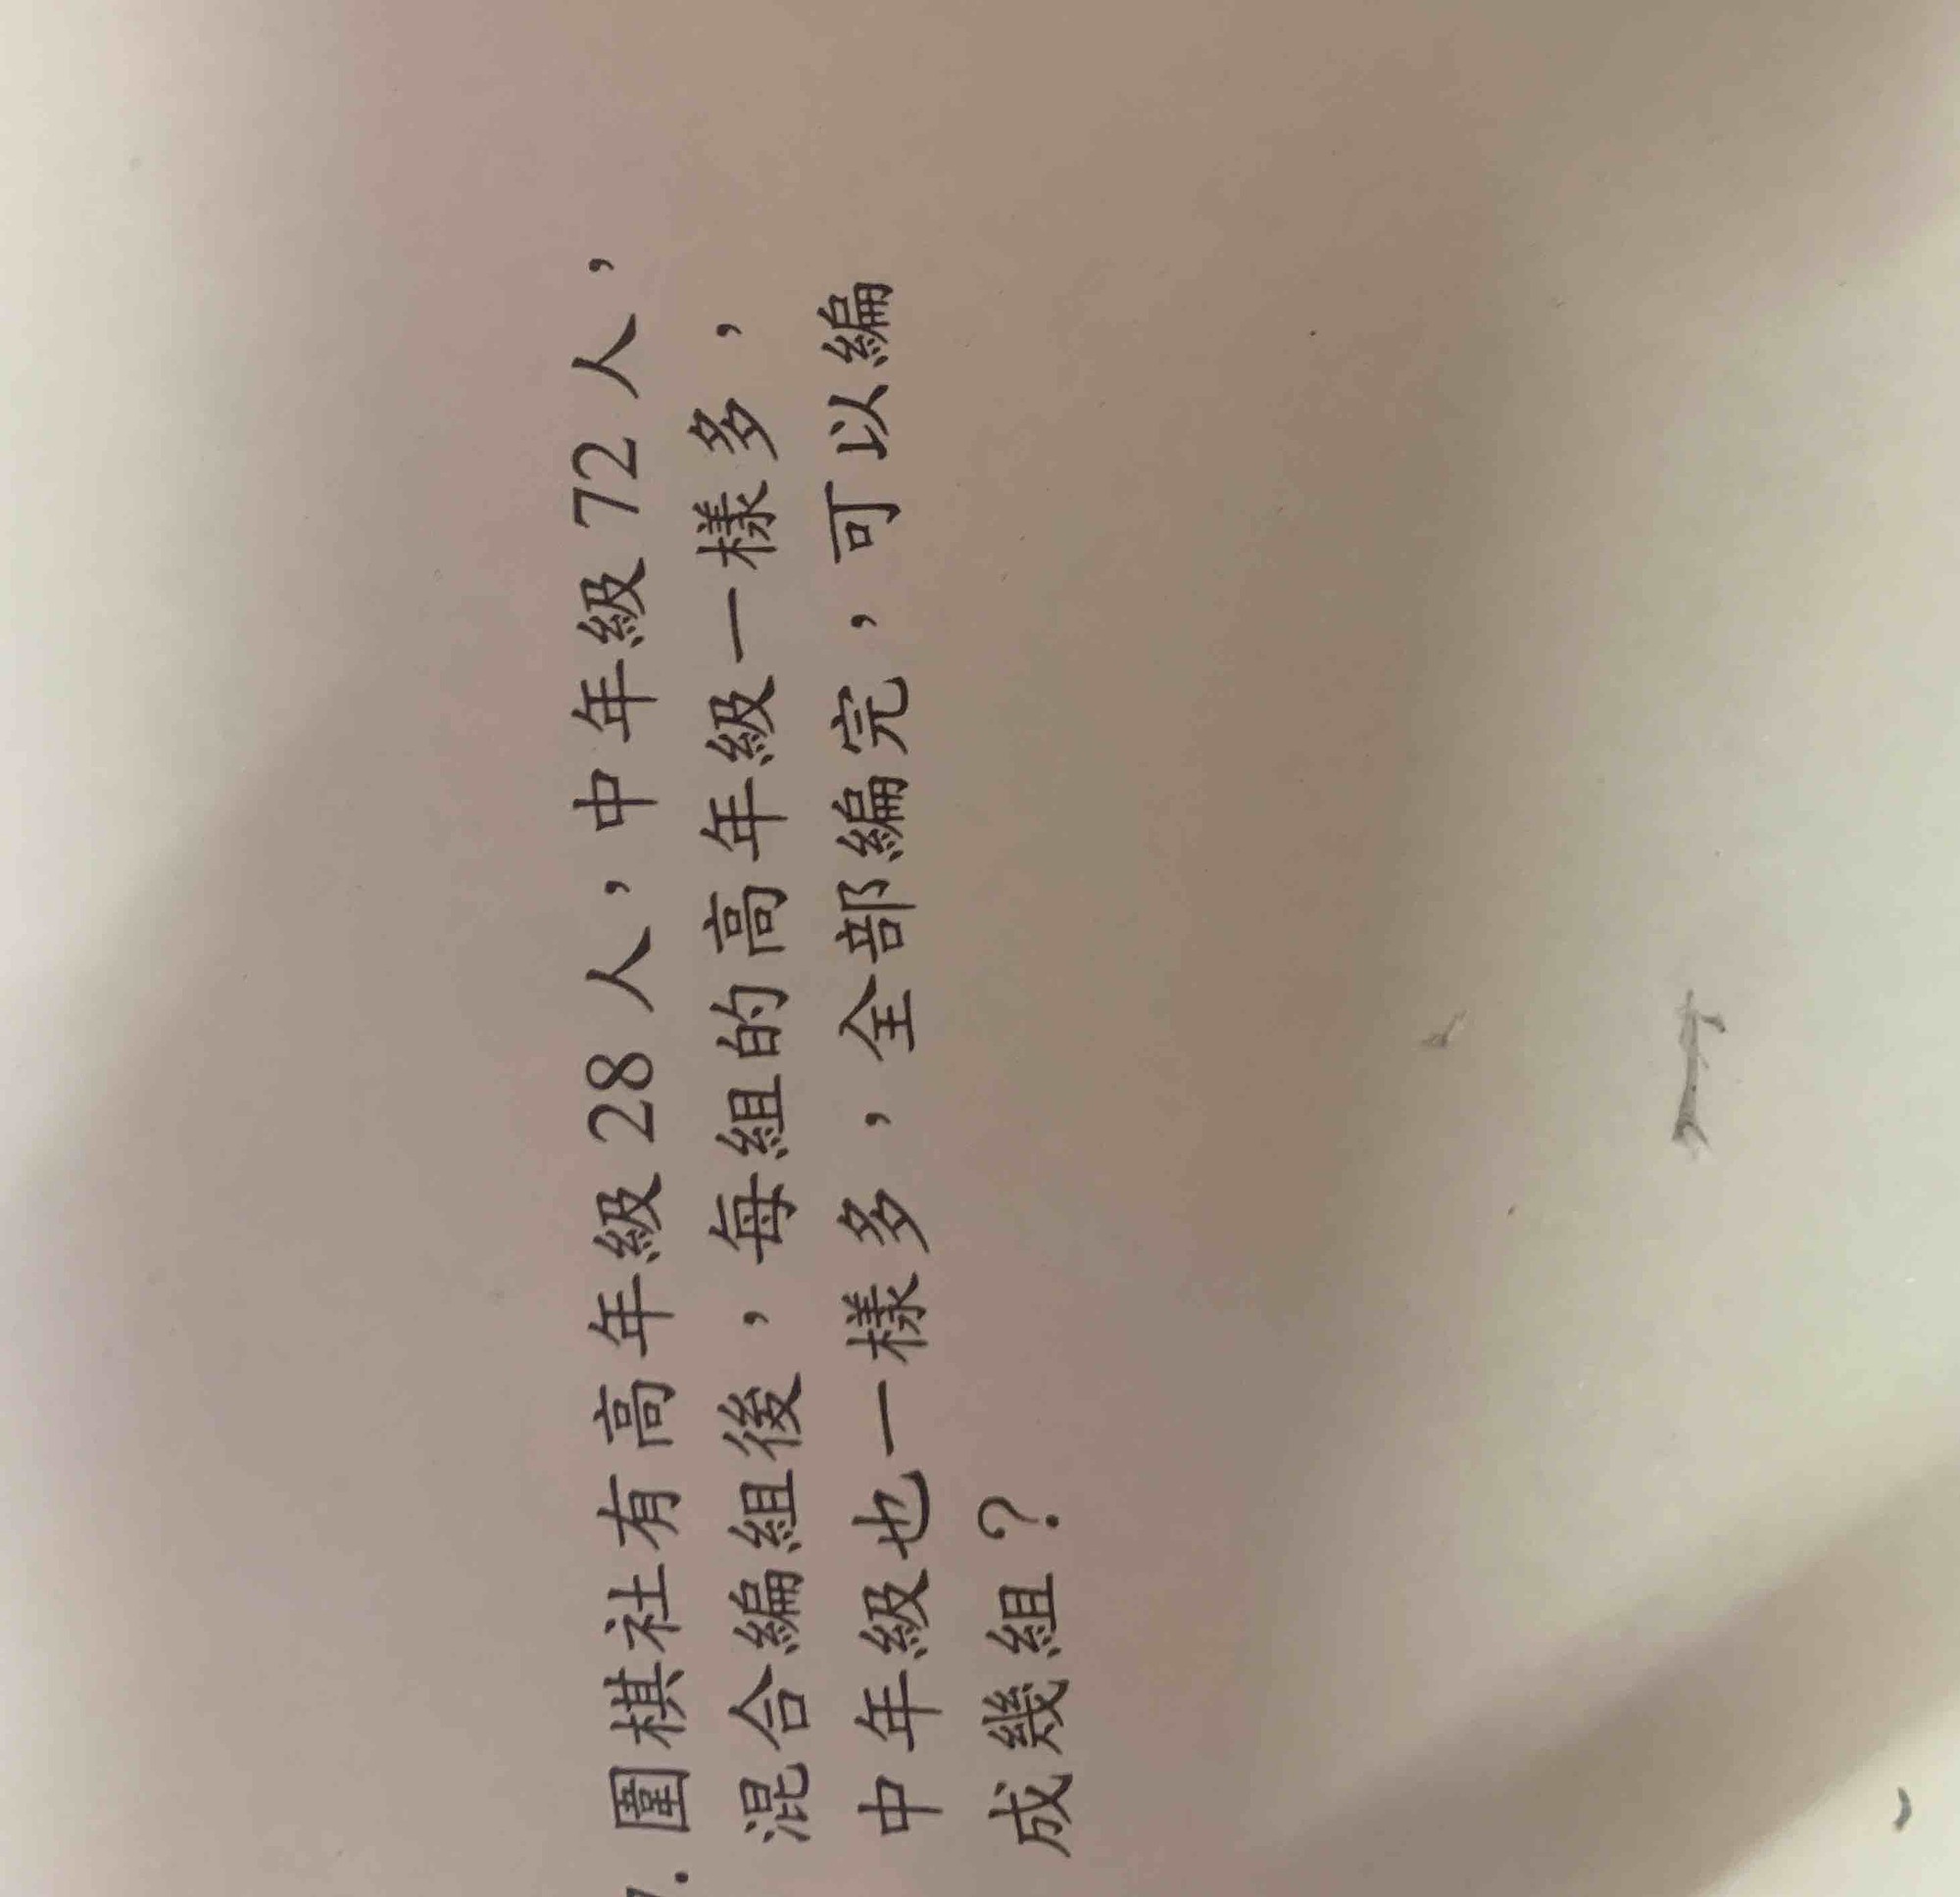 圍棋社有高年級28人，中年級72人，
混合編組後，每組的高年級一樣多，
中年級也一樣多，全部編完，可以編
成幾組？